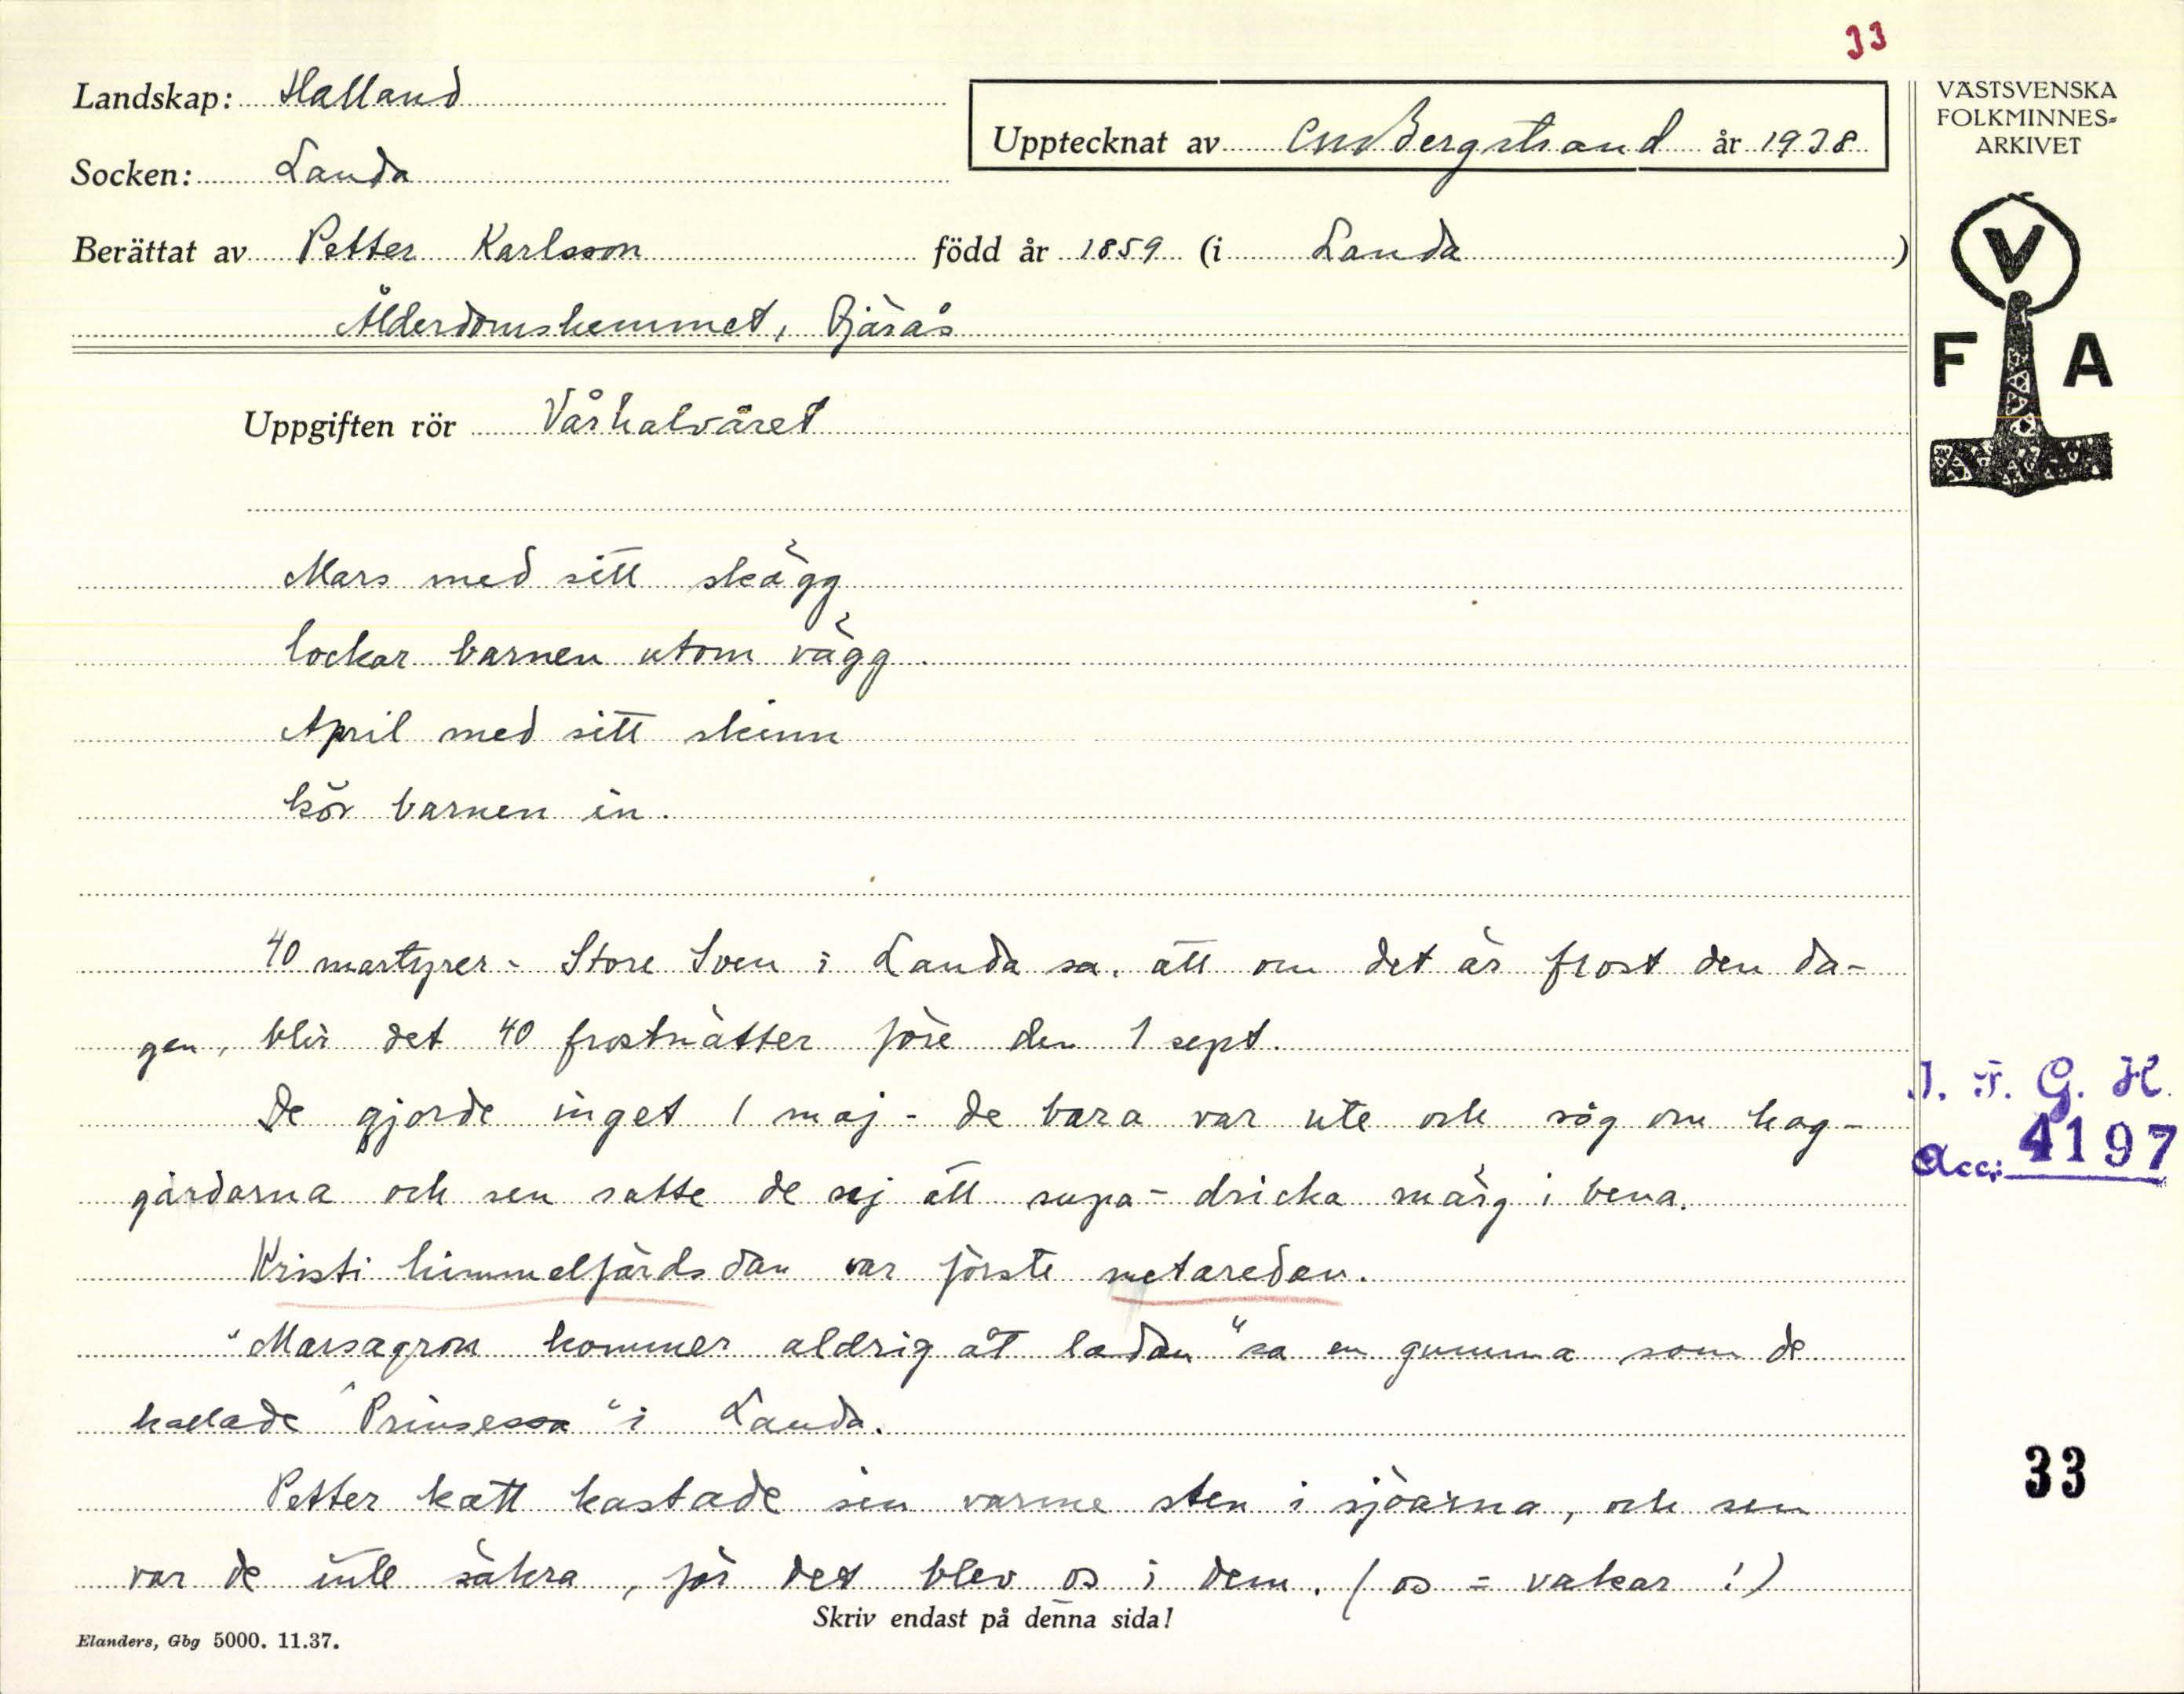 33
Landskap: Halland
Upptecknat av CMBergstrand år 1938
VÄSTSVENSKA
FOLKMINNES-
ARKIVET
Socken: Landa
Berättat av Petter Karlsson född år 1859 (i Landa)
Ålderdomshemmet, Fjärås
V
F A
Uppgiften rör Vårhalvåret
Mars med sitt skägg
lockar barnen utom vägg.
April med sitt skinn
kör barnen in.
40 martyrer - Store Sven i Landa sa. att om det är frost den da-
gen, blir det 40 frostnätter före den 1 sept.
De gjorde inget 1 maj - de bara var ute och såg om hag-
gärdarna och sen satte de sej att supa - dricka märg i bena.
I. F. G. H.
Acc: 4197
Kristi himmelfärdsdan var förste metaredan.
"Marsagron kommer aldrig åt ladan" sa en gumma som de
kallade "Prinsessa" i Landa.
Petter katt kastade sin varme sten i sjöarna, och sen
var de inte säkra, för det blev os i dem. (os = vakar!)
33
Skriv endast på denna sida!
Elanders, Gbg 5000. 11.37.